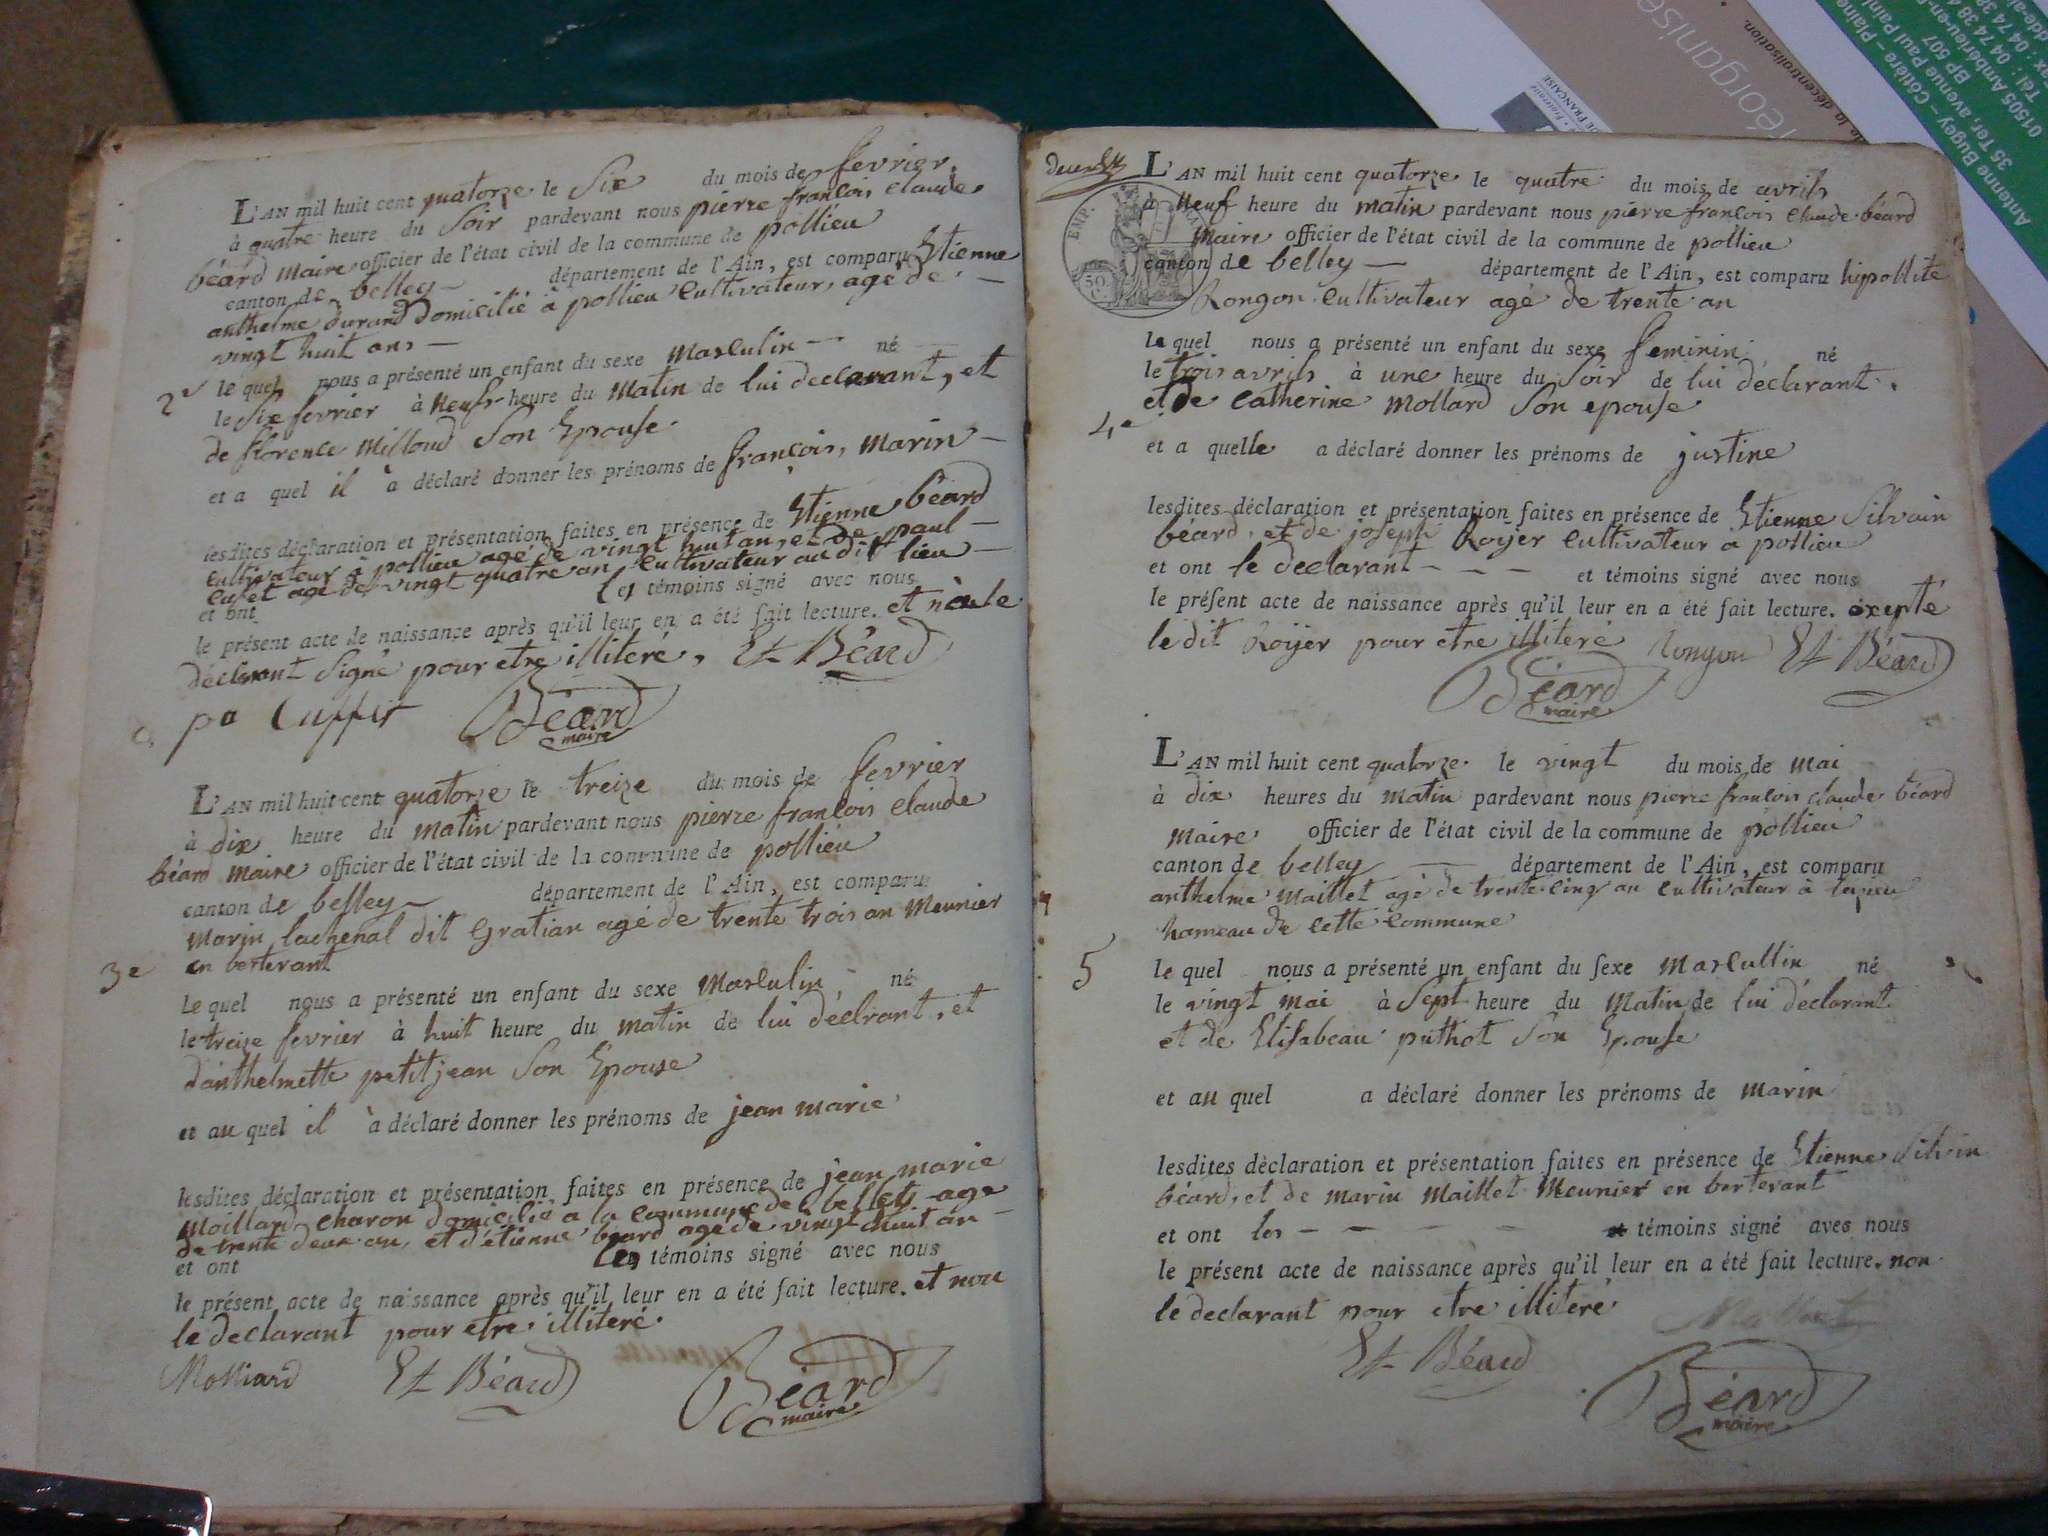 L'AN mil huit cent quatorze le Six du mois de fevrier
à quatre heure du Soir pardevant nous pierre françois Claude
béard maire officier de l'état civil de la commune de pollieu
canton de belley département de l'Ain, est comparu Etienne
anthelme durand Domicilié à pollieu Cultivateur, agé de
vingt huit ans
2e
le quel nous a présenté un enfant du sexe Masculin né
le Six fevrier à Neuf heure du Matin de lui declarant, et
de florence Milloud Son Epouse
et a quel il à déclaré donner les prénoms de françois, Marin
lesdites déclaration et présentation faites en présence de Etienne béard
Cultivateur à pollieu agé de vingt huit an, et de paul
agé de vingt quatre an Cultivateur au dit lieu
et ont les témoins signé avec nous
le présent acte de naissance après qu'il leur en a été fait lecture. et
déclarant Signé pour etre illiteré. Et Béard
Béard
maire
L'AN mil huit cent quatorze le treize du mois de fevrier
à dix heure du matin pardevant nous pierre françois Claude
béard maire officier de l'état civil de la commune de pollieu
canton de belley département de l'Ain, est comparu
Marin lachenal dit Gratian agé de trente trois an Meunier
en berterant
3e
le quel nous a présenté un enfant du sexe Masculin, né
le treize fevrier à huit heure du matin de lui déclrant, et
d'anthelmette petitjean Son Epouse
et au quel il à déclaré donner les prénoms de jean marie
lesdites déclaration et présentation faites en présence de jean marie
Moillard charon domicilié a la commune de belley age
de trente deux an, et d'étienne béard agé de vingt huit an
et ont les témoins signé avec nous
le présent acte de naissance après qu'il leur en a été fait lecture. et non
le declarant pour etre illiteré.
Et Béard
Béard
maire
L'AN mil huit cent quatorze le quatre du mois de avrils
à Neuf heure du matin pardevant nous pierre françois Claude béard
Maire officier de l'état civil de la commune de pollieu
canton de belley département de l'Ain, est comparu hipollite
Rongon Cultivateur agé de trente an
EMP.
50
le quel nous a présenté un enfant du sexe feminin né
le trois avrils à une heure du Soir de lui déclarant.
et de Catherine Mollard Son epouse
4e
et a quelle a déclaré donner les prénoms de justine
lesdites déclaration et présentation faites en présence de Etienne Silvain
béard, et de joseph Roijer Cultivateur a pollieu
et ont le declarant et témoins signé avec nous
le présent acte de naissance après qu'il leur en a été fait lecture. exepté
le dit Roijer pour etre illiteré Rongon Et Béard
Béard
maire
L'AN mil huit cent quatorze le vingt du mois de mai
à dix heures du matin pardevant nous pierre francois claude béard
Maire officier de l'état civil de la commune de pollieu
canton de belley département de l'Ain, est comparu
anthelme Maillet agé de trente cinq an Cultivateur à
hameau de cette commune
5
le quel nous a présenté un enfant du sexe Mascullin né
le vingt mai à Sept heure du Matin de lui déclarant
et de Elisabeau puthot Son Epouse
et au quel a déclaré donner les prénoms de marin
lesdites dèclaration et présentation faites en présence de Etienne Silvin
béard, et de marin Maillet Meunier en berterant
et ont les témoins signé avec nous
le présent acte de naissance après qu'il leur en a été fait lecture. non
le declarant pour etre illiteré
Et Béard
Béard
maire
éorganise
de la décentralisation.
DE FRANÇAISE
Antenne Bugey – Côtière – Plaine
35 Ter, avenue Paul Pain
BP 507
01505 Ambérieu-en-
Tél : 04 74 38